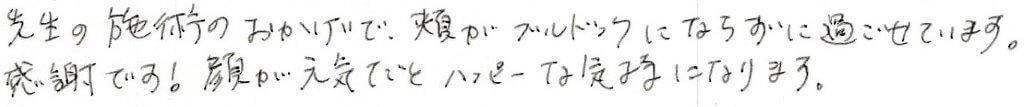 先生の施術のおかげで、頬がブルドックにならずに過ごせています。
感謝です！顔が元気だとハッピーな気持になります。